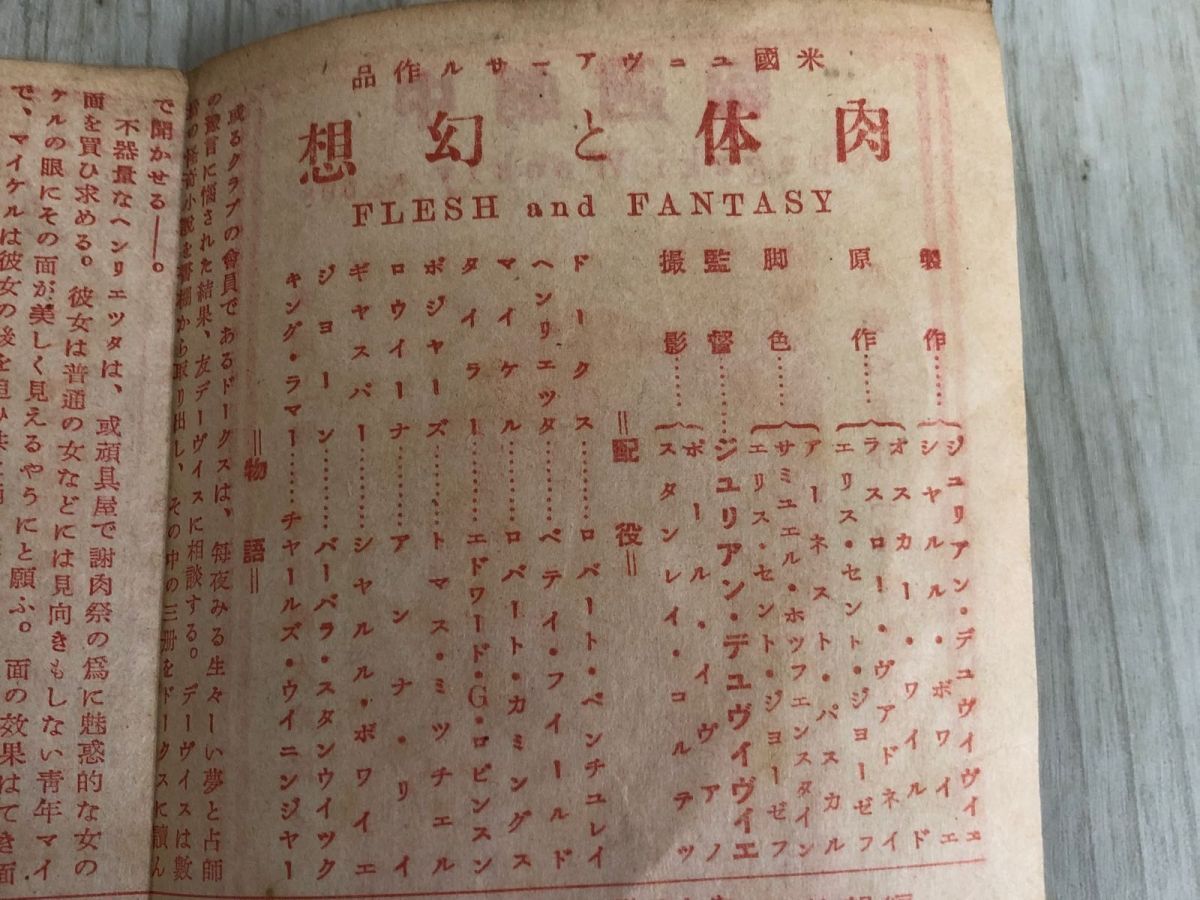 米國ユニヴアーサル作品
肉体と幻想
FLESH and FANTASY
製作……{ジユリアン・デユヴイヴイエ
シヤルル・ボワイエ
原作……{オスカー・ワイルド
ラスロー・ヴアドネイ
エリス・セント・ジヨーゼフ
脚色……{アーネスト・パスカル
サミユエル・ホツフエンスタイン
エリス・セント・ジヨーゼフ
監督……ジユリアン・デユヴイヴイエ
撮影……{ポール・イヴアノ
スタンレイ・コルテツ
=配役=
ドークス……ロバート・ベンチユレイ
ヘンリエツタ……ベテイ・フイールド
マイケル……ロバート・カミングス
タイラー……エドワード・G・ロビンスン
ポジヤーズ……トマス・ミツチエル
ロウイーナ……アンナ・リイ
ギヤスパー……シヤルル・ボワイエ
ジヨーン……バーバラ・スタンウイツク
キング・ラマー……チヤールズ・ウイニンジヤー
=物語=
或るクラブの會員であるドークスは、毎夜みる生々しい夢と占師
の豫言に惱された結果、友デーヴイスに相談する。デーヴイスは數
から取り出し、その中の三册をドークスに讀ん
で聞かせる――。
不器量なヘンリエツタは、或頑具屋で謝肉祭の爲に魅惑的な女の
面を買ひ求める。彼女は普通の女などには見向きもしない靑年マイ
ケルの眼にその面が美しく見えるやうにと願ふ。面の效果はてき面
で、マイケルは彼女の後を追ひ